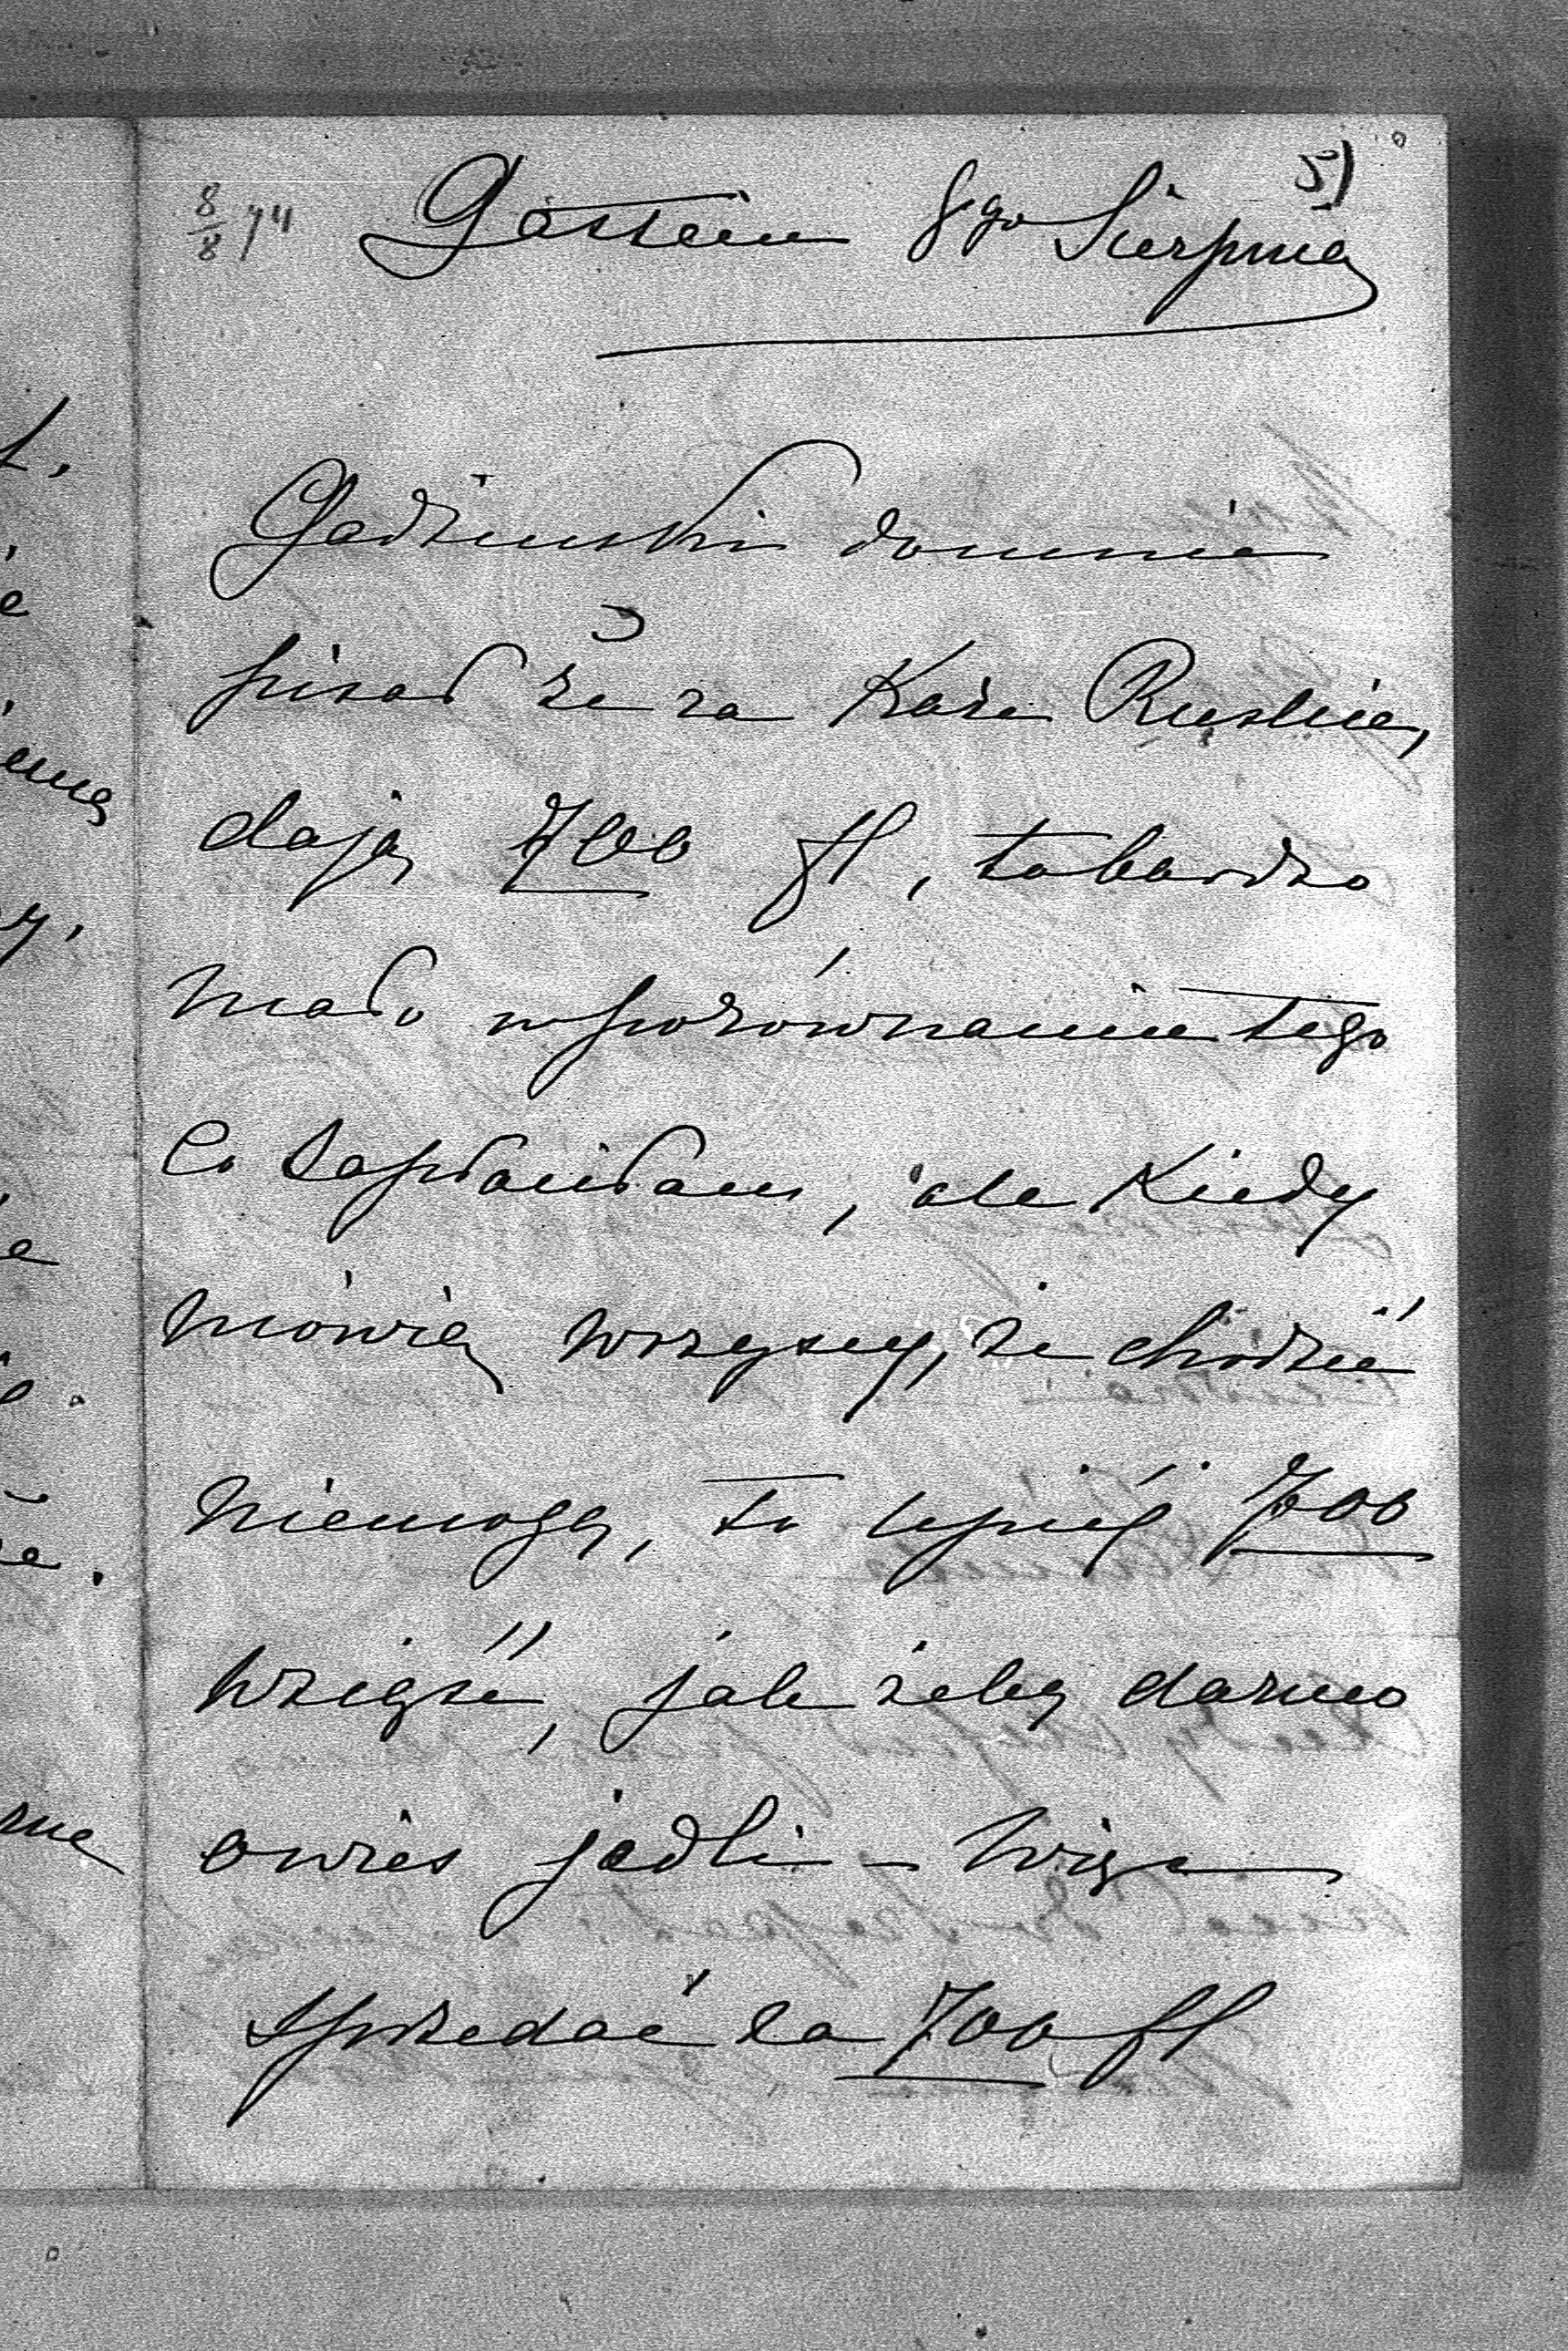 5)
8/8 74 Gastein 8go Sierpnia
Gadzinski domnie
pisał że za Kare Ruskie,
dają 700 fl, to bardzo
mało wporównaniu tego
Co zapłaciłam, ale Kiedy
mówią wszyscy, że chodzić
niemogą, to lepiéj 700
wziąść, jak żeby darmo
owies jedli – więc
sprzedać za 700 fl